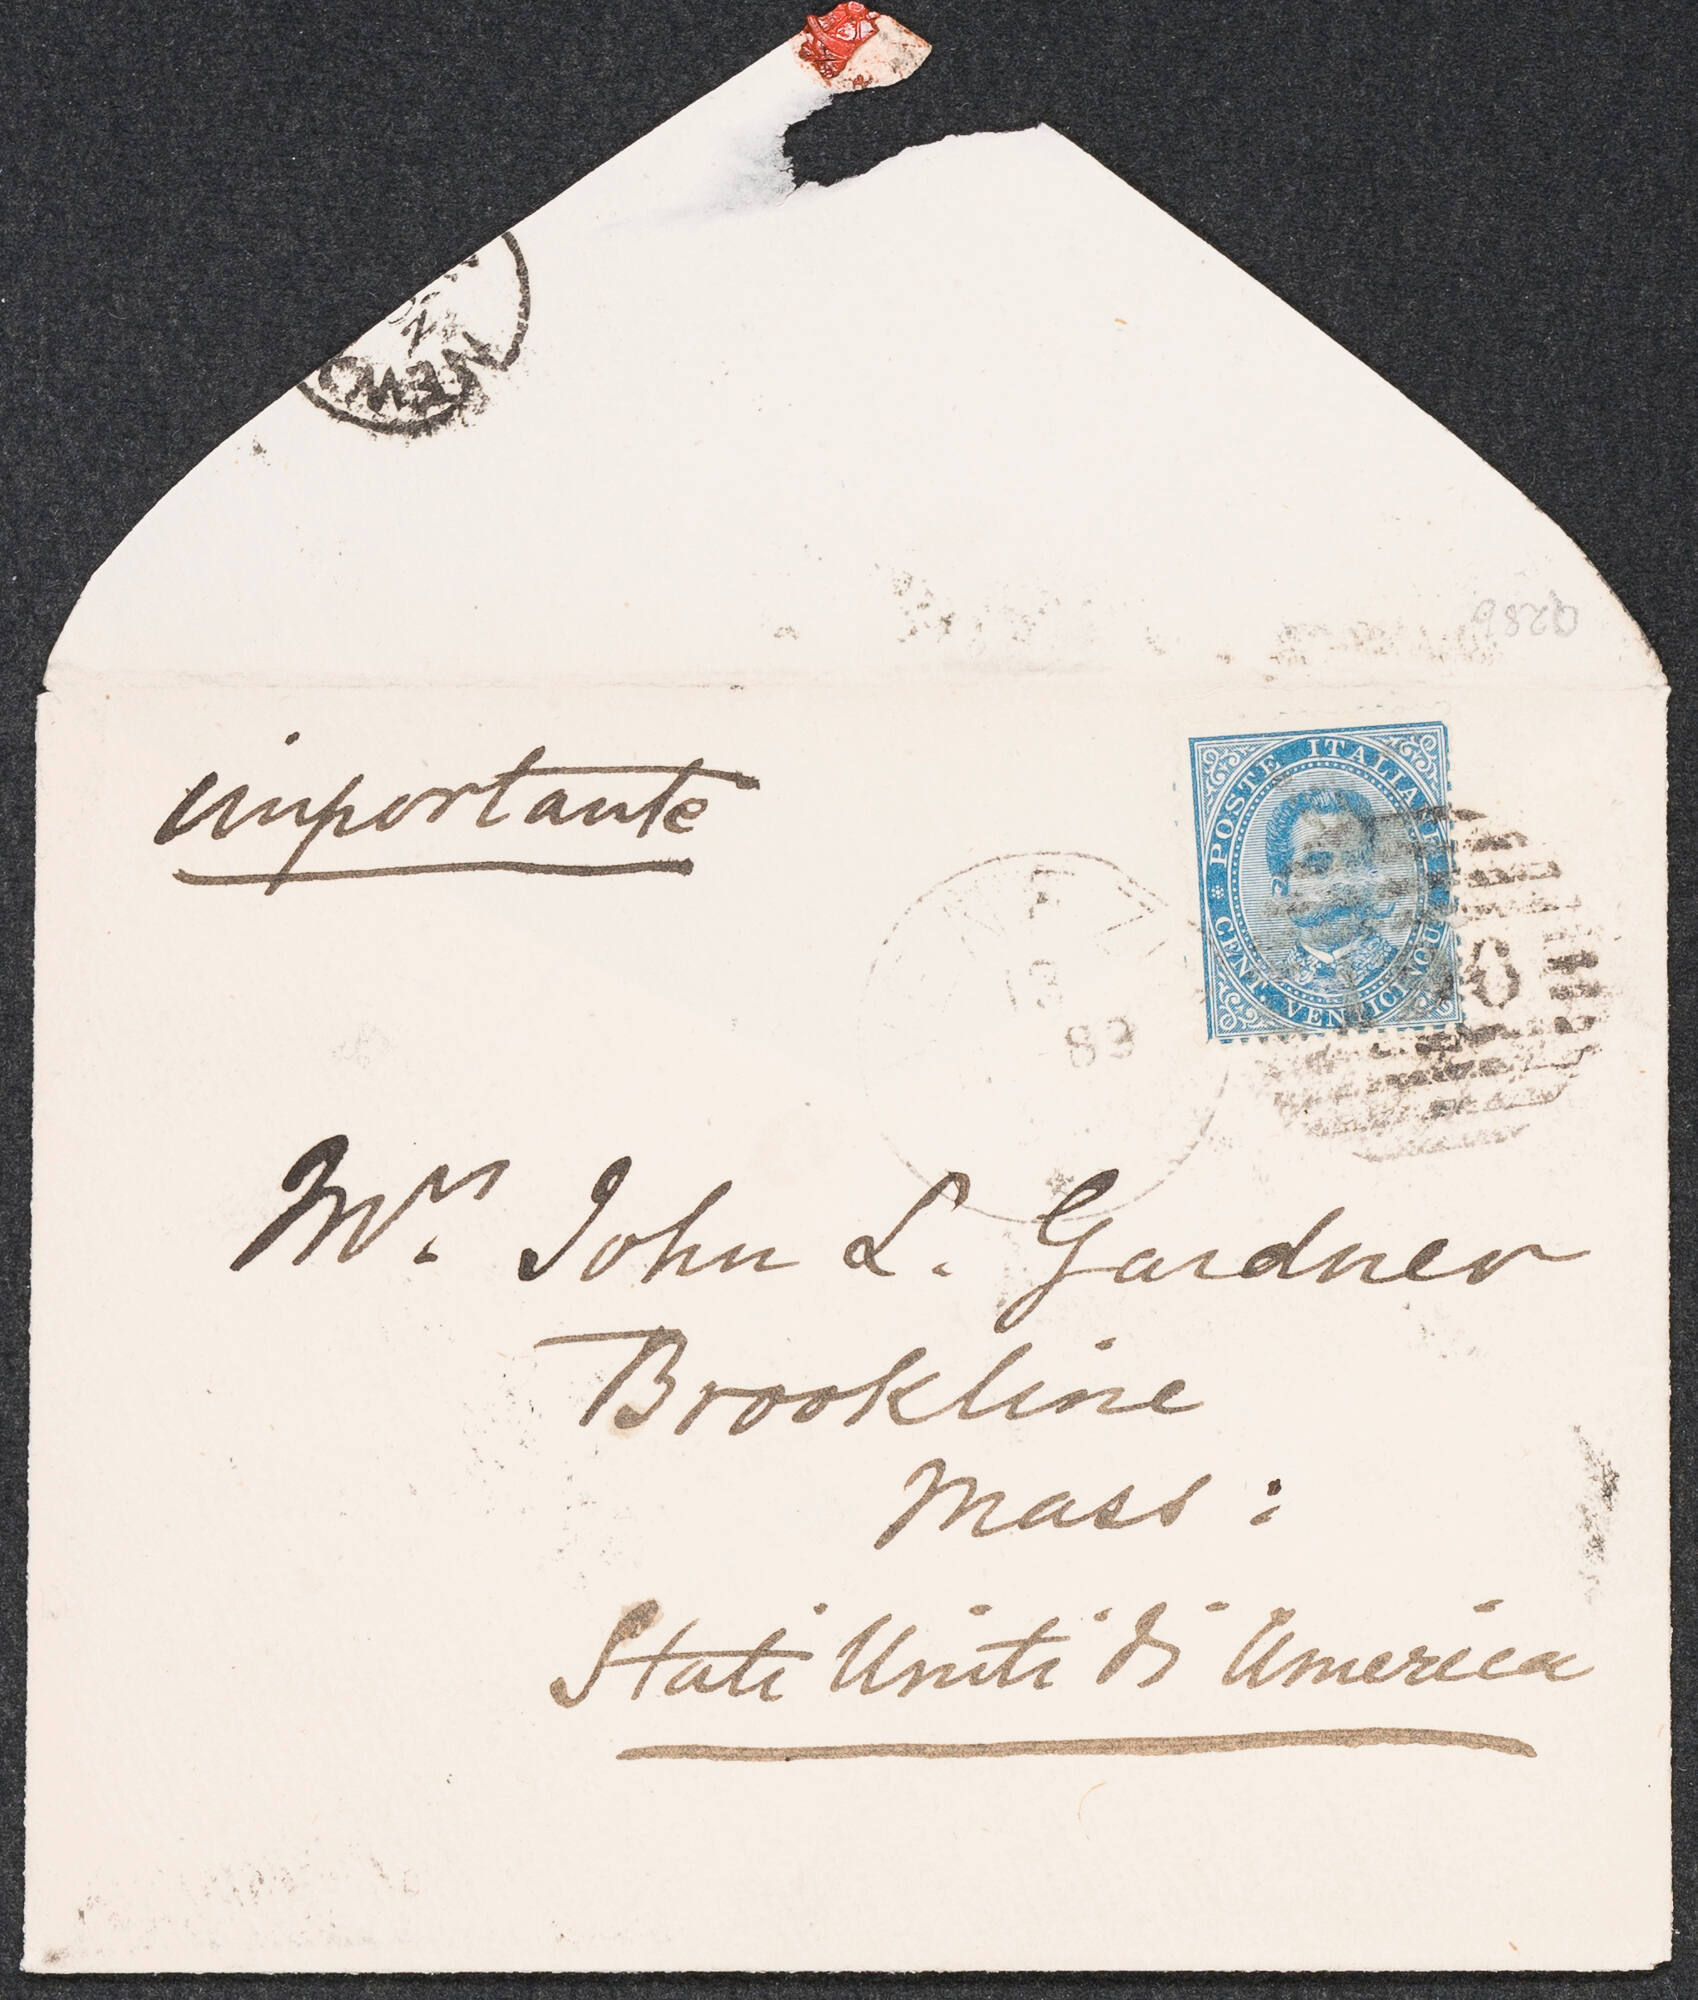 NEW
importante
POSTE ITALIANE
CENT. VENTICINQUE
13
83
6
Mrs. John L. Gardner
Brookline
Mass:
Stati Uniti di America